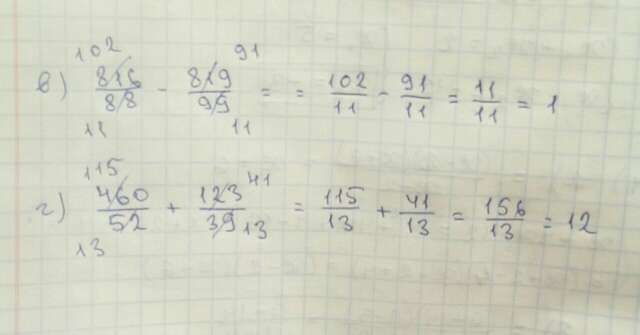 в) 816/88 - 819/99 = = 102/11 - 91/11 = 11/11 = 1
102 91
11 11
г) 460/52 + 123/39 = 115/13 + 41/13 = 156/13 = 12
115 41
13 13